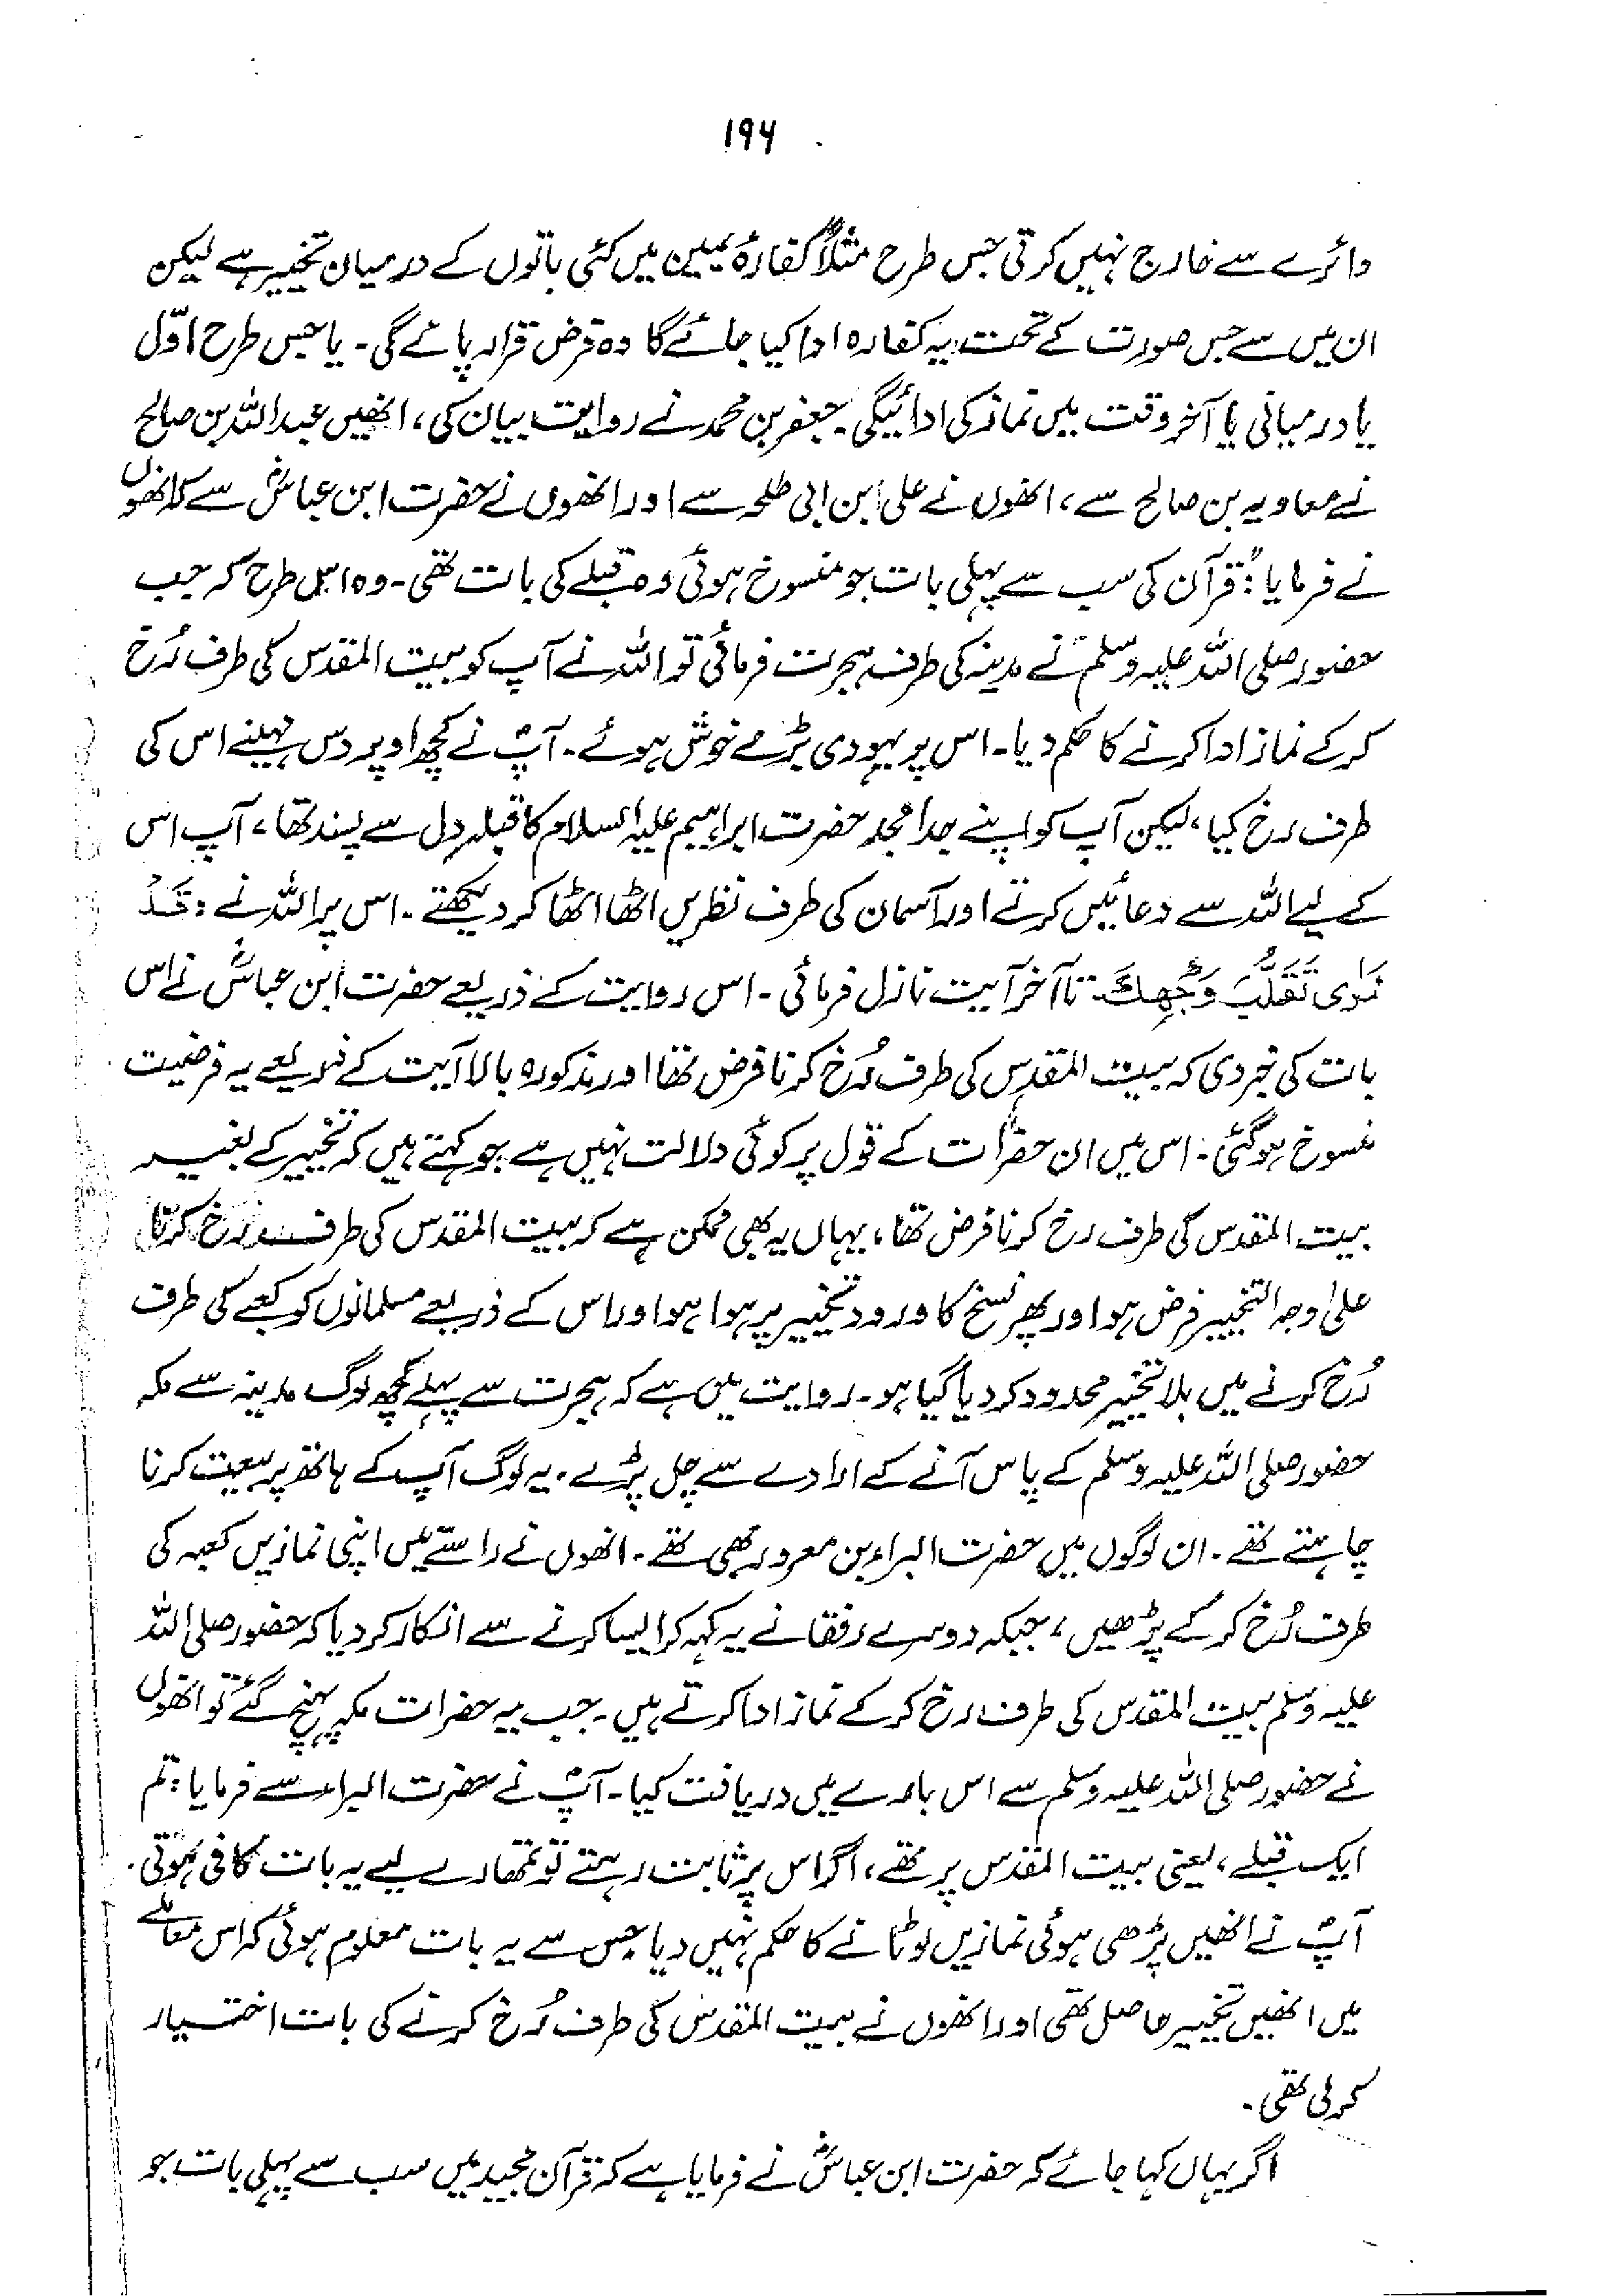 ۱۹۶
دائرے سے خارج نہیں کرتی جس طرح مثلاً کفارۂ یمین میں کئی باتوں کے درمیان تخییر ہے لیکن
ان میں سے جس صورت کے تحت یہ کفارہ ادا کیا جائے گا وہ فرض قرار پائے گی۔ یا جس طرح اوّل
یا درمیانی یا آخر وقت میں نماز کی ادائیگی۔ جعفر بن محمد نے روایت بیان کی، انھیں عبداللہ بن صالح
نے معاویہ بن صالح سے، انھوں نے علی ابن ابی طلحہ سے اور انھوں نے حضرت ابن عباسؓ سے کہ انھوں
نے فرمایا: "قرآن کی سب سے پہلی بات جو منسوخ ہوئی وہ قبلے کی بات تھی۔ وہ اس طرح کہ جب
حضور صلی اللہ علیہ وسلم نے مدینہ کی طرف ہجرت فرمائی تو اللہ نے آپ کو بیت المقدس کی طرف رُخ
کر کے نماز ادا کرنے کا حکم دیا۔ اس پر یہودی بڑے خوش ہوئے۔ آپؐ نے کچھ اوپر دس مہینے اس کی
طرف رخ کیا، لیکن آپ کو اپنے جدامجد حضرت ابراہیم علیہ السلام کا قبلہ دل سے پسند تھا، آپ اس
کے لیے اللہ سے دعائیں کرتے اور آسمان کی طرف نظریں اٹھا اٹھا کر دیکھتے۔ اس پر اللہ نے: قَدْ
نَرٰى تَقَلُّبَ وَجْهِكَ۔ تا آخر آیت نازل فرمائی۔ اس روایت کے ذریعے حضرت ابن عباسؓ نے اس
بات کی خبر دی کہ بیت المقدس کی طرف رُخ کرنا فرض تھا اور مذکورہ بالا آیت کے ذریعے یہ فرضیت
منسوخ ہوگئی۔ اس میں ان حضرات کے قول پر کوئی دلالت نہیں ہے جو کہتے ہیں کہ تخییر کے بغیر
بیت المقدس کی طرف رخ کرنا فرض تھا، یہاں یہ بھی ممکن ہے کہ بیت المقدس کی طرف رخ کرنا
علی وجہ التخییر فرض ہو اور پھر نسخ کا ورود تخییر پر ہوا ہو اور اس کے ذریعے مسلمانوں کو کعبے کی طرف
رُخ کرنے میں بلا تخییر محدود کر دیا گیا ہو۔ روایت میں ہے کہ ہجرت سے پہلے کچھ لوگ مدینہ سے مکہ
حضور صلی اللہ علیہ وسلم کے پاس آنے کے ارادے سے چل پڑے۔ یہ لوگ آپ کے ہاتھ پر بیعت کرنا
چاہتے تھے۔ ان لوگوں میں حضرت البراء بن معرور بھی تھے۔ انھوں نے راستے میں اپنی نمازیں کعبہ کی
طرف رُخ کر کے پڑھیں، جبکہ دوسرے رفقا نے یہ کہہ کر ایسا کرنے سے انکار کر دیا کہ حضور صلی اللہ
علیہ وسلم بیت المقدس کی طرف رخ کر کے نماز ادا کرتے ہیں۔ جب یہ حضرات مکہ پہنچ گئے تو انھوں
نے حضور صلی اللہ علیہ وسلم سے اس بارے میں دریافت کیا۔ آپؐ نے حضرت البراء سے فرمایا: تم
ایک قبلے، یعنی بیت المقدس پر تھے، اگر اس پر ثابت رہتے تو تمھارے لیے یہ بات کافی ہوتی۔
آپؐ نے انھیں پڑھی ہوئی نمازیں لوٹانے کا حکم نہیں دیا جس سے یہ بات معلوم ہوئی کہ اس معاملے
میں انھیں تخییر حاصل تھی اور انھوں نے بیت المقدس کی طرف رُخ کرنے کی بات اختیار
کر لی تھی۔
اگر یہاں کہا جائے کہ حضرت ابن عباسؓ نے فرمایا ہے کہ قرآن مجید میں سب سے پہلی بات جو